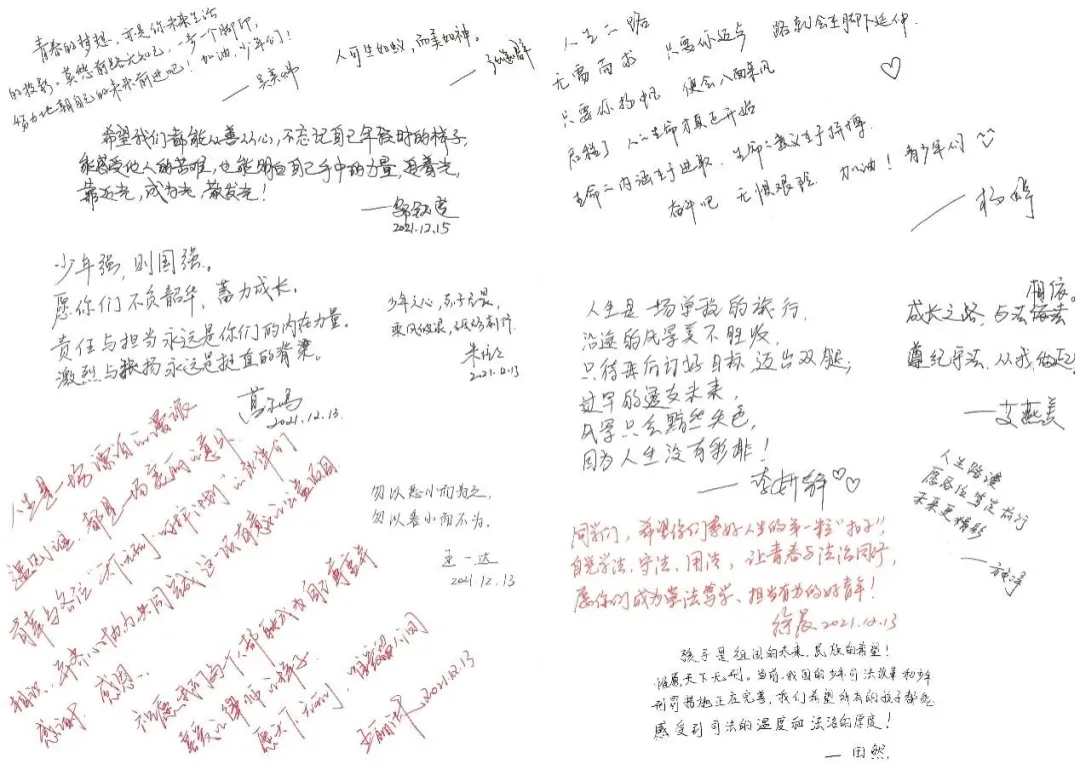 青春的梦想,亦是你未来生活
的投影。莫愁前路无知己,一步一个脚印,
努力地朝自己的未来前进吧!加油,少年们!
——吴美
人可生如蚁,而美如神。
希望我们都能从善从心,不忘记自己年轻时的样子,
能感受他人的苦难,也能明白自己手中的力量,追着光,
靠近光,成为光,散发光!
2021.12.15
人生的路
无需苛求 只要你迈步 路就会在脚下延伸
只要你扬帆 便会八面来风
启程了 人的生命才真正开始
生命的内涵在于进取 生命的意义在于拼搏
奋斗吧 无惧艰险 加油!青少年们
——杨婷
少年强,则国强。
愿你们不负韶华,蓄力成长。
责任与担当永远是你们的内在力量。
激烈与张扬永远是挺直的脊梁。
2021.12.13
少年之心,赤子无畏,
乘风破浪,砥砺前行。
2021.12.13
人生是一场单程的旅行,
沿途的风景美不胜收,
只待再后订好目标,迈出双腿;
过早的透支未来,
风景只会黯然失色,
因为人生没有彩排!
——李妍静
成长之路,与法
相依。
遵纪守法,从我做起
——艾燕美
人生是一场漂泊的漫旅
遇见谁,都是一场美丽的意外
有幸与各位“天下无刑”呵样计划”的
感谢 感恩
祝愿我们每个人都能成为自己尊重并
喜爱的律师的样子
愿天下无刑,
2021.12.13
勿以恶小而为之,
勿以善小而不为。
王一达
2021.12.13
人生路漫
愿各位笃定前行
未来更精彩
同学们,希望你们系好人生的第一粒“扣子”,
自觉学法、守法、用法,让青春与法治同行,
愿你们成为崇法笃学、担当有为的好青年!
徐晨 2021.12.13
孩子是祖国的未来,民族的希望!
惟愿天下无刑。当前,我国的少年司法改革和少年
刑罚措施正在完善,我们希望所有的孩子都能
感受到司法的温度和法治的厚度!
——田然